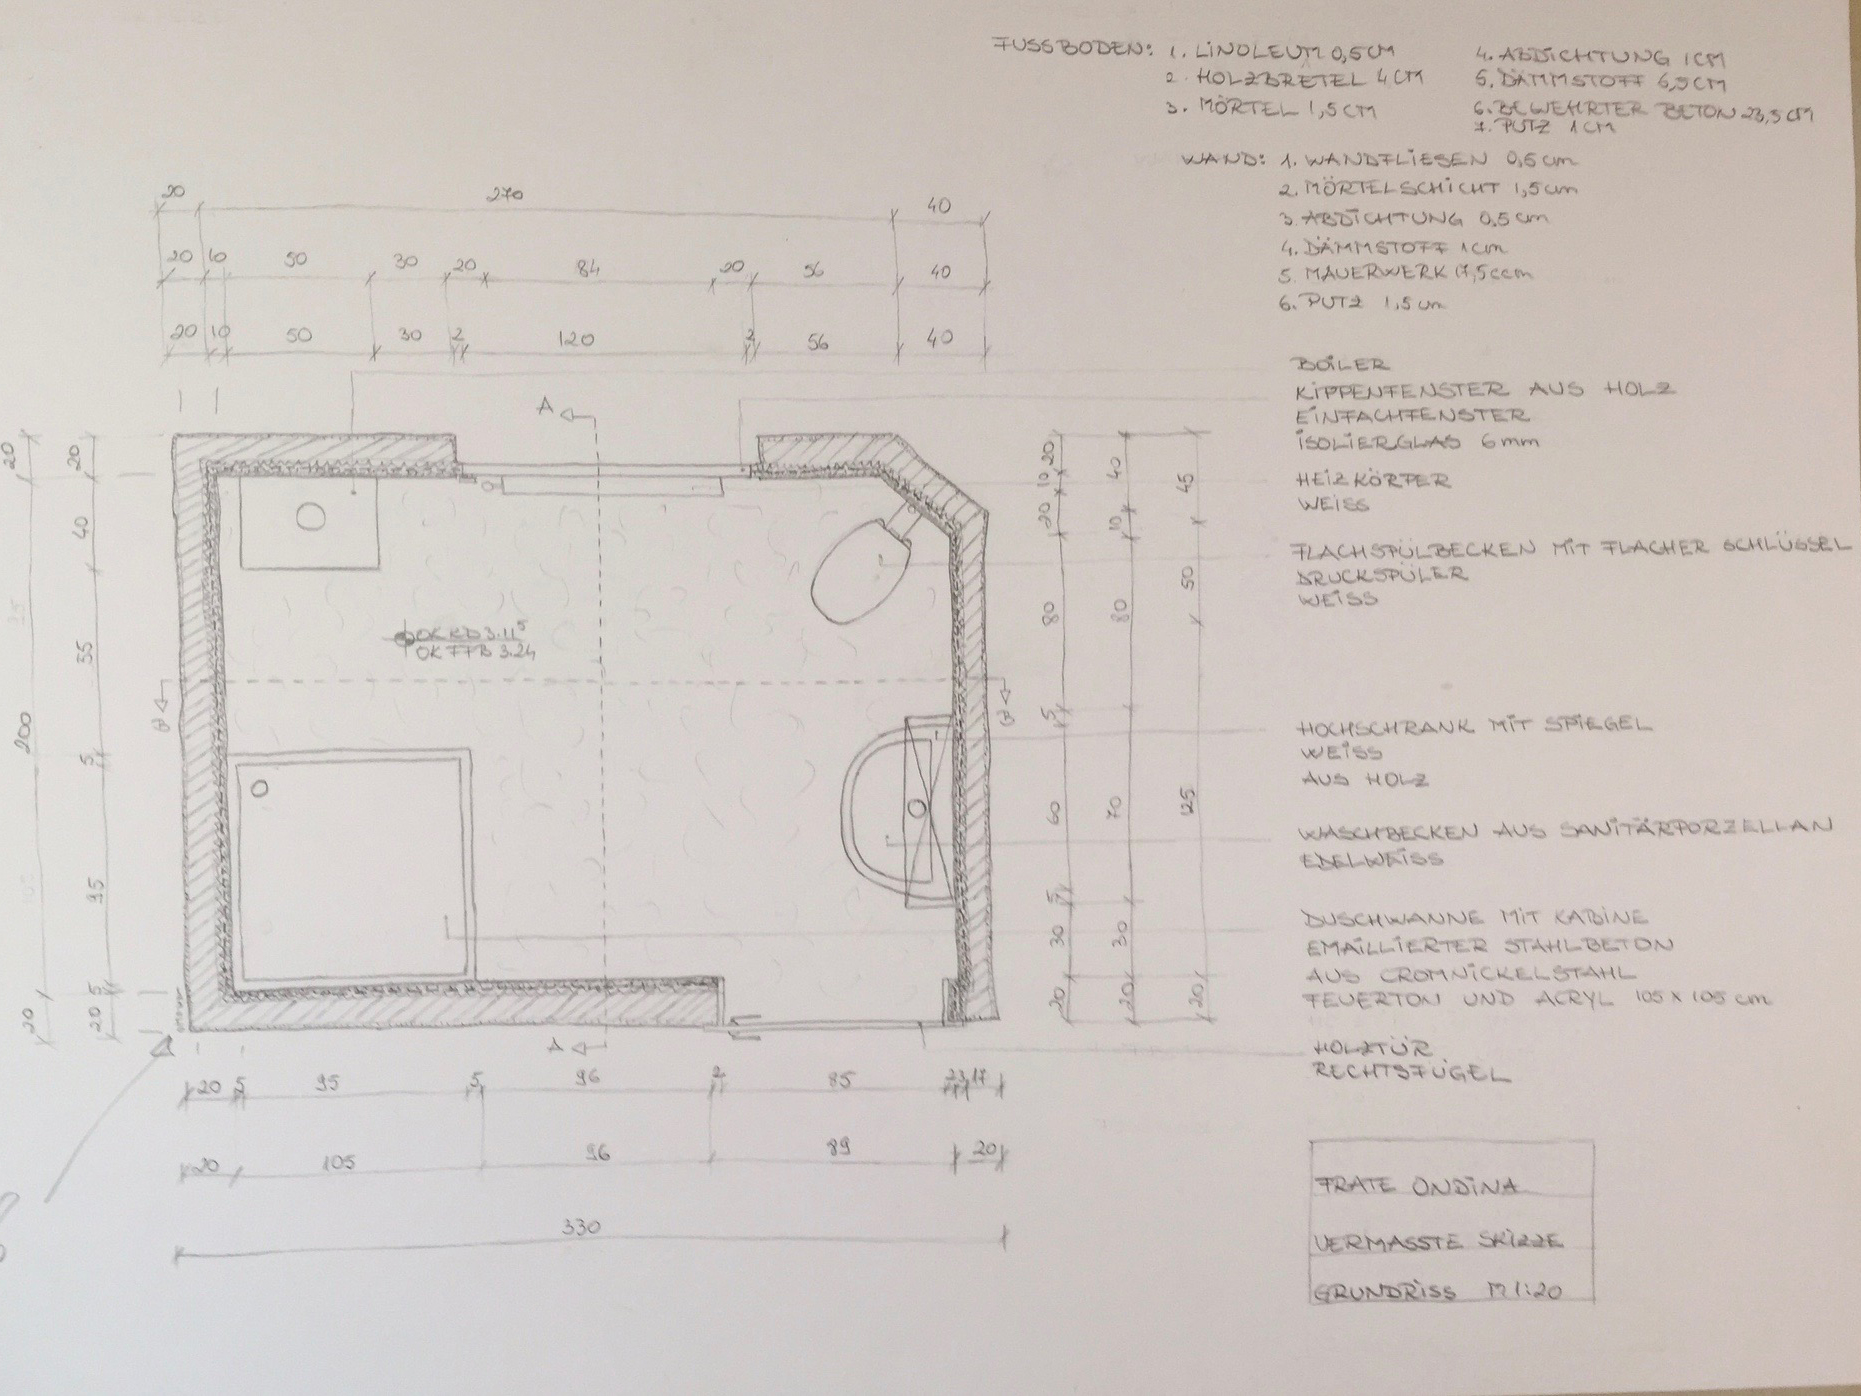 FUSSBODEN: 1. LINOLEUM 0,5CM
2. HOLZBRETEL 4CM
3. MÖRTEL 1,5CM
4. ABDICHTUNG 1CM
5. DÄMMSTOFF 6,5CM
6. BEWEHRTER BETON 23,5CM
7. PUTZ 1CM
WAND: 1. WANDFLIESEN 0,5cm
2. MÖRTELSCHICHT 1,5cm
3. ABDICHTUNG 0,5cm
4. DÄMMSTOFF 1cm
5. MAUERWERK 17,5ccm
6. PUTZ 1,5cm
20 270 40
20 10 50 30 20 84 20 56 40
20 10 50 30 2 120 2 56 40
BOILER
KIPPENFENSTER AUS HOLZ
EINFACHFENSTER
ISOLIERGLAS 6mm
HEIZKÖRPER
WEISS
FLACHSPÜLBECKEN MIT FLACHER SCHLÜSSEL
DRUCKSPÜLER
WEISS
HOCHSCHRANK MIT SPIEGEL
WEISS
AUS HOLZ
WASCHBECKEN AUS SANITÄRPORZELLAN
EDELWEISS
DUSCHWANNE MIT KABINE
EMAILLIERTER STAHLBETON
AUS CROMNICKELSTAHL
FEUERTON UND ACRYL 105 x 105 cm
HOLZTÜR
RECHTSFÜGEL
A
20 200 20
20 40 55 5 95 5 20
OK RD 3.11⁵
OK FFB 3.24
B
B
20 10 20 80 5 60 5 30 20
40 10 80 70 30 20
45 50 125 20
A
20 5 95 5 96 2 85 2 3 17
20 105 96 89 20
330
FRATE ONDINA
VERMASSTE SKIZZE
GRUNDRISS M 1:20